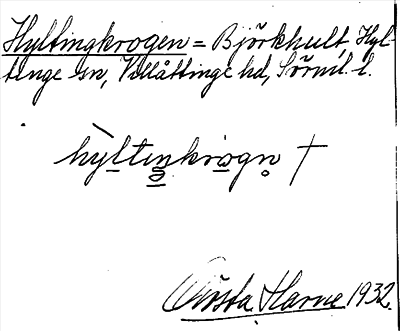 Hyltingkrogen = Björkhult, Hyl-
tinge sn, Villåttinge hd, Sörml. l.
hỳltiŋkrogn̥ †
Gösta Harne 1932.